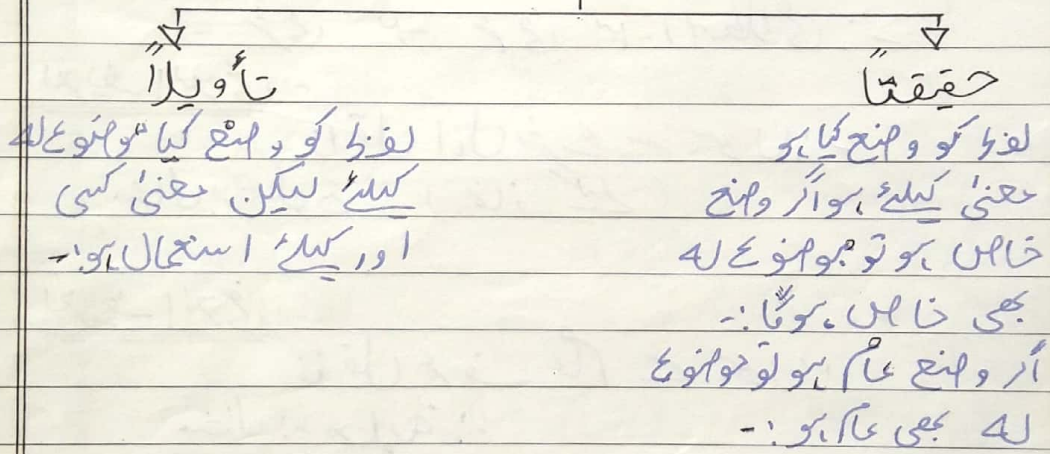 حقیقتاً
لفظ کو وضع کیا ہو
معنیٰ کیلئے ہو اگر وضع
خاص ہو تو موضوع لہ
بھی خاص ہوگا:-
اگر وضع عام ہو تو موضوع
لہ بھی عام ہو:-
تأویلاً
لفظ کو وضع کیا موضوع لہ
کیلئے لیکن معنیٰ کسی
اور کیلئے استعمال ہو:-